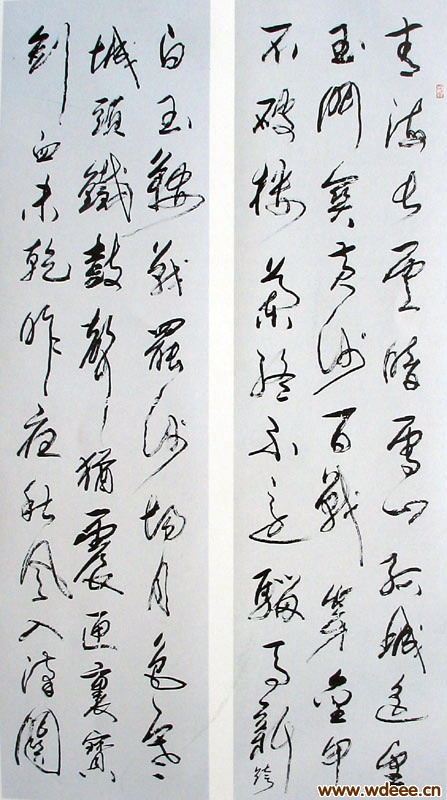 青海長雲暗雪山孤城遥望
玉門關黄沙百戰穿金甲
不破樓蘭終不還騮馬新跨
白玉鞍戰罷沙場月色寒
城頭鐵鼓聲猶震匣裏寶
劍血未乾昨夜秋風入漢關
www.wdeee.cn